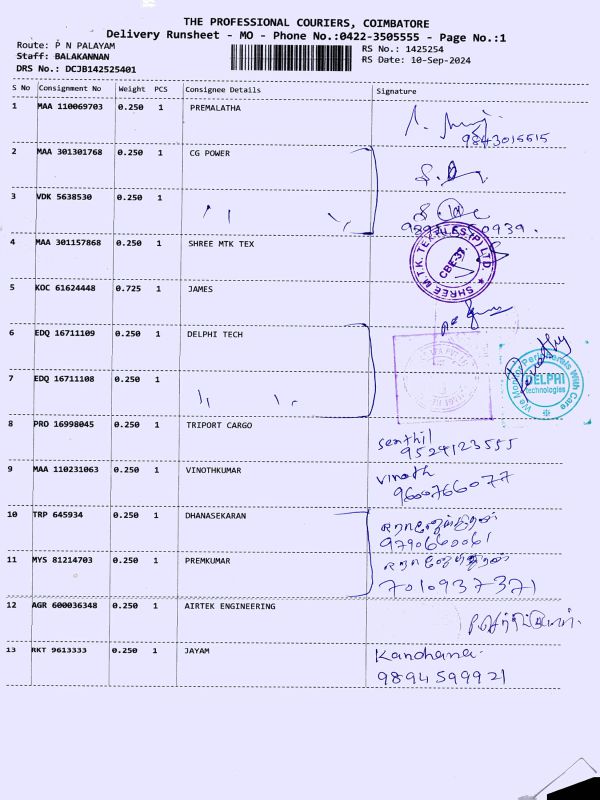 THE PROFESSIONAL COURIERS, COIMBATORE
Delivery Runsheet - MO - Phone No.:0422-3505555 - Page No.:1
Route: P N PALAYAM
RS No.: 1425254
Staff: BALAKANNAN
RS Date: 10-Sep-2024
DRS No.: DCJB142525401
S No Consignment No Weight PCS Consignee Details Signature
1 MAA 110069703 0.250 1 PREMALATHA
9843015515
2 MAA 301301768 0.250 1 CG POWER
3 VDK 5638530 0.250 1
4 MAA 301157868 0.250 1 SHREE MTK TEX
SHREE M.T.K. TEXTILES (P) LTD. CBE-37.
5 KOC 61624448 0.725 1 JAMES
6 EDQ 16711109 0.250 1 DELPHI TECH
7 EDQ 16711108 0.250 1
We Monitor Peripherals With Care
DELPHI
technologies
8 PRO 16998045 0.250 1 TRIPORT CARGO
senthil
9524123555
9 MAA 110231063 0.250 1 VINOTHKUMAR
vinoth
9600766077
10 TRP 645934 0.250 1 DHANASEKARAN
9790660061
11 MYS 81214703 0.250 1 PREMKUMAR
7010937371
12 AGR 600036348 0.250 1 AIRTEK ENGINEERING
13 RKT 9613333 0.250 1 JAYAM
Kandhana
9894599921